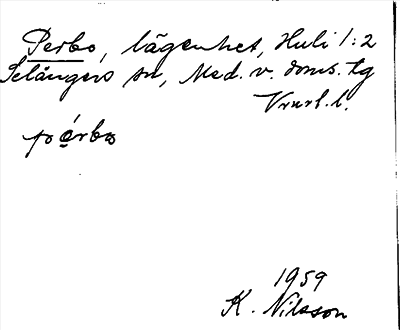 Perbo, lägenhet, Huli 1:2
Selångers sn, Med. v. doms. tg
Vrurl. l.
pérbo
1959
K. Nilsson